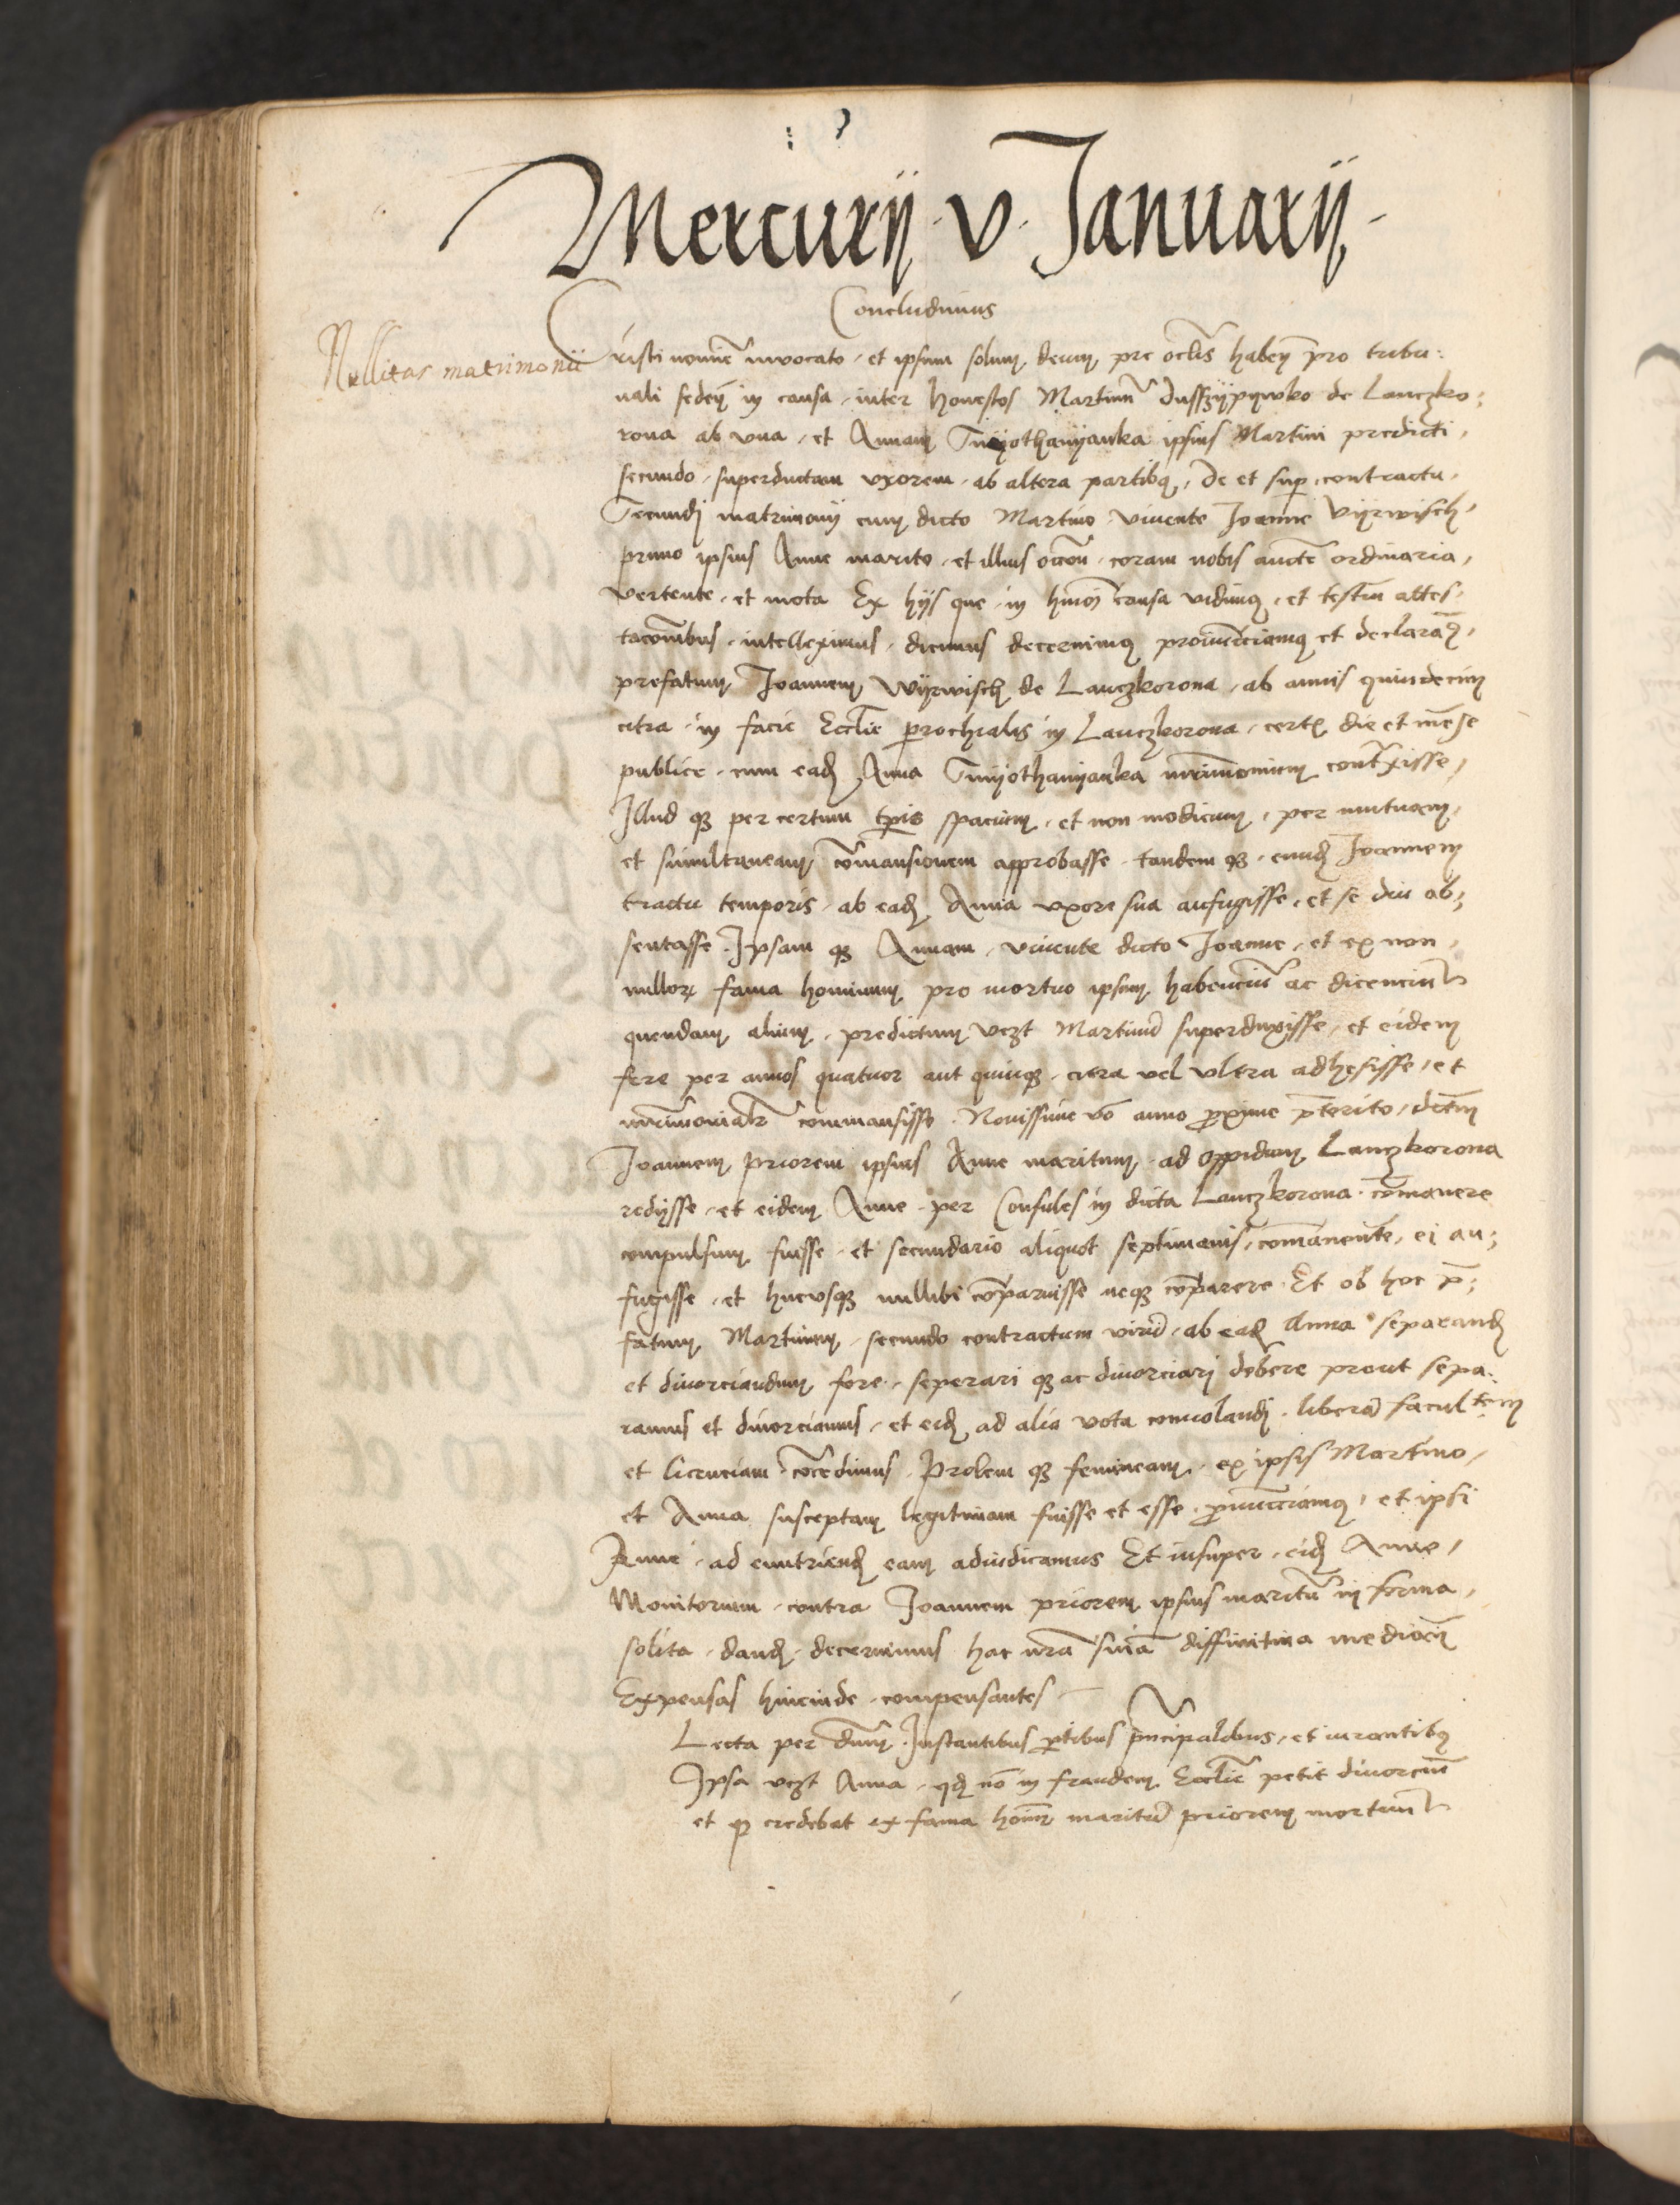 Mercurij · v · Januarij ·
Concludimus
Nullitas matrimonii
Cristi nomine invocato · et ipsum solum deum pre oclis haben pro tribu:
nali seden in causa · inter honestos Martinum Dusszijpijwko de Lanczko:
rona ab vna · et Annam ipsius Martini predicti ·
secundo · superductam vxorem · ab altera partibus · De et super contractu ·
Secundi matrimonij cum dicto Martino · vivente Joanne Vijrwisch ·
primo ipsius Anne marito · et illius occon · coram nobis aucte ordinaria ·
vertente · et mota Ex hijs que · in hmoi causa vidimus · et testium attes:
taconibus · intelleximus · dicimus decernimus pronuncciamus et declaram ·
prefatum Joannem Wijrwisch de Lanczkorona · ab annis quindecim
citra · in facie Ecclie parochialis in Lanczkorona · certis die et mense
publice · cum ead Anna mrimonium contraxisse ·
Illud que per certum tpis spacium · et non modicum · per mutuam ·
et simultaneam commansionem approbasse · tandem que · eund Joannem
tractu temporis · ab ead Anna vxore sua aufugisse · et se diu ab:
sentasse · Ipsam que Annam · vivente dicto Joanne · et ex non ·
nullor fama hominum pro mortuo ipsum habencium ac dicencium
quendam alium · predictum vczt Martinum superduxisse · et eidem
fere per annos quatuor aut quinque · citra vel vltra adhesisse · et
mrimonialr commansisse · Novissime vo anno proxime preterito · dictum
Joannem priorem ipsius Anne maritum · ad oppidum Lanczkorona
redijsse · et eidem Anne · per Consules in dicta Lanczkorona · commanere
compulsum fuisse · et secundario aliquot septimanis · commanente · ei au:
fugisse · et hucusque nullibi comparuisse neque comparere · Et ob hoc pre:
fatum Martinum · secundo contractum virum · ab ead Anna separand
et divorciandum fore · separari que ac divorciari debere prout sepa:
ramus et divorciamus · et eid ad alia vota convolandi · liberam facultem
et licenciam concedimus · Prolem que femineam · ex ipsis Martino ·
et Anna susceptam legitimam fuisse et esse · pronuncciamus · et ipsi
Anne · ad enutriend eam adiudicamus Et insuper · eid Anne ·
Monitorium · contra Joannem priorem ipsius maritum in forma ·
solita · dand · decernimus hac nra snia diffinitiva mediocim
Expensas hincinde · compensantes
Lecta per dnum · Instantibus partibus principalibus · et iurantibus
Ipsa vczt Anna · qd non in fraudem Ecclie petit divorcium
et que credebat ex fama hoim maritum priorem mortuum